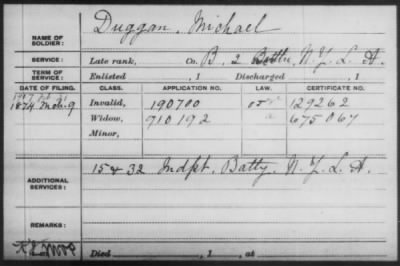 NAME OF SOLDIER: Duggan, Michael
SERVICE: Late rank, Co. B, 2 N. Y. L. A.
TERM OF SERVICE: Enlisted , 1 Discharged , 1
DATE OF FILING. CLASS. APPLICATION NO. LAW. CERTIFICATE NO.
1874 Invalid, 190700 129262
Widow, 910192 a 675067
Minor,
ADDITIONAL SERVICES: 15 & 32 Indpt. Batty. N. Y. L. A.
REMARKS:
Died , 1 , at